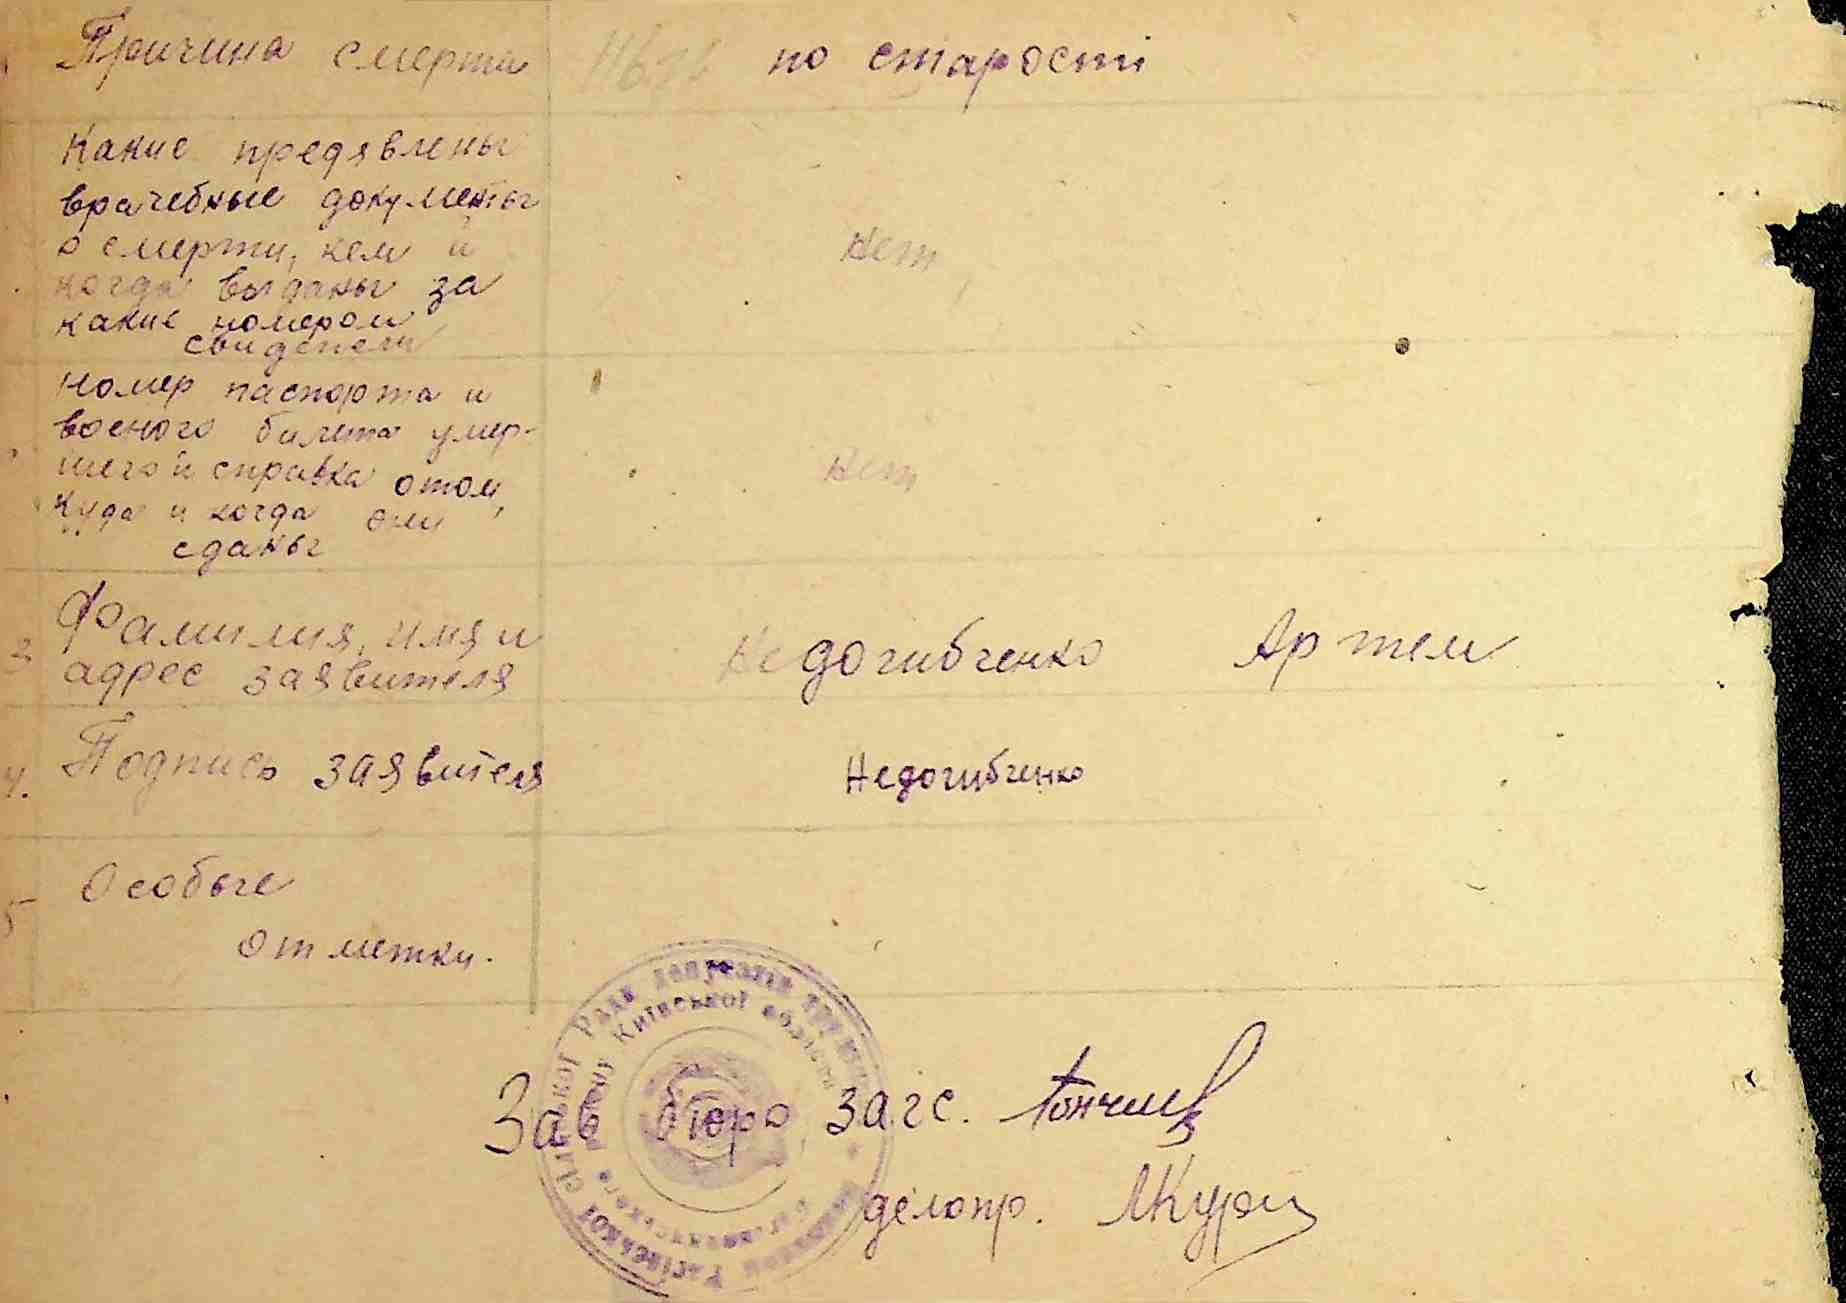 Причина смерти по старости
Какие предявлены
врачебные документы
о смерти, кем и
когда выданы за
какие номером
свидетели
нет
Номер паспорта и
военого билета умер-
шего и справка отом,
куда и когда они
сданы
нет
3 Фамилия, имя и
адрес заявителя
Недогибченко Артем
4. Подпись заявителя Недогибченко
5 Особые
отметки.
сільської Ради депутатів
району Київської області
Зав бюро загс.
делопр.